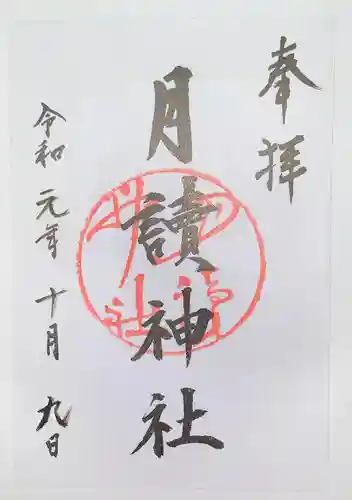 奉拝
月讀神社
令和元年十月九日